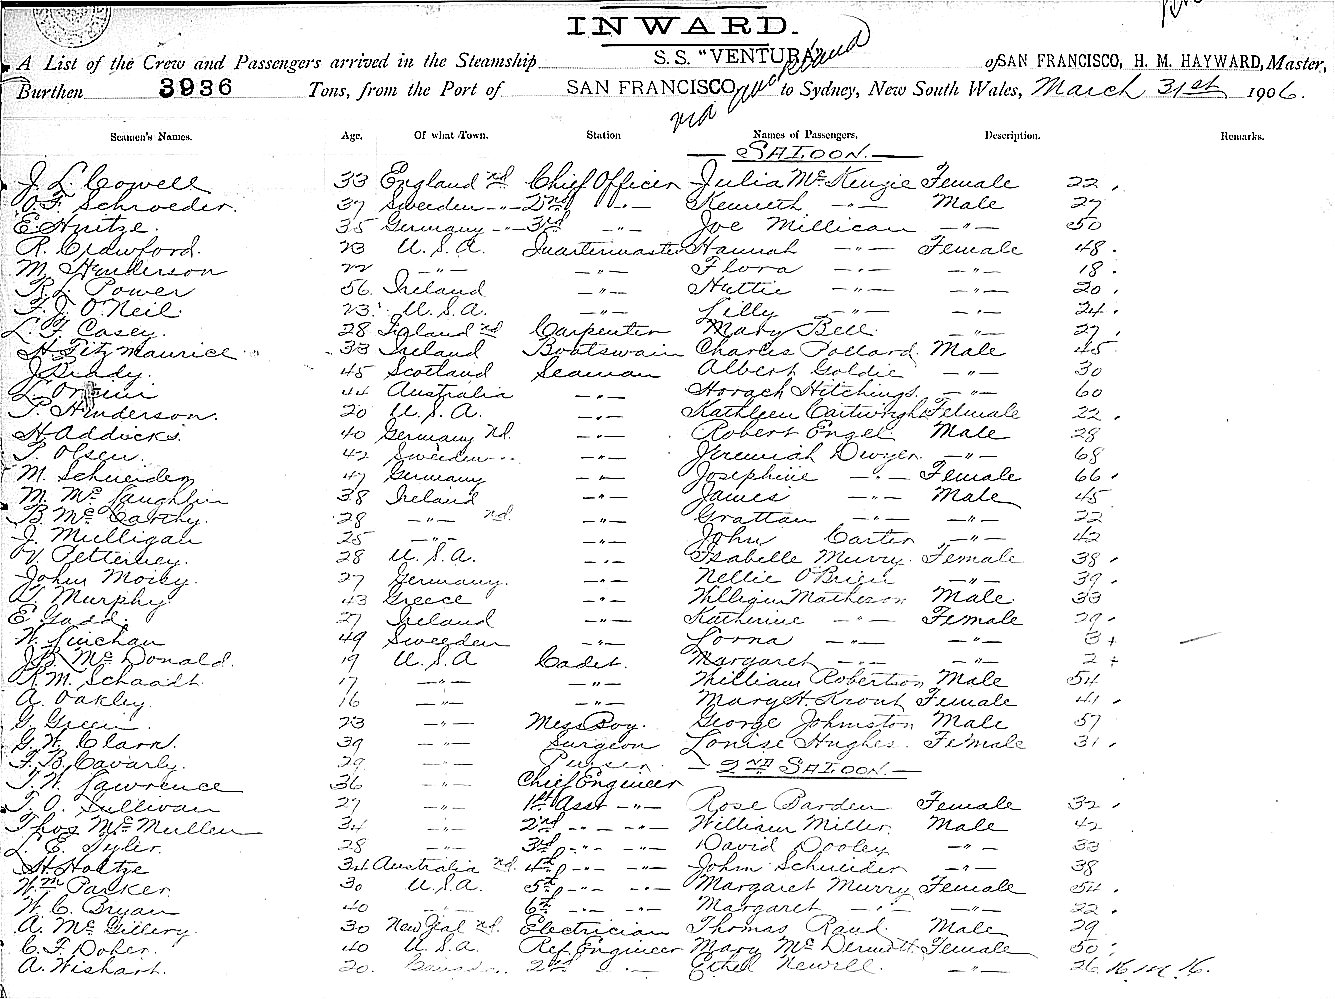 INWARD.
A List of the Crew and Passengers arrived in the Steamship S.S. "VENTURA" of SAN FRANCISCO, H. M. HAYWARD, Master,
Burthen 3936 Tons, from the Port of SAN FRANCISCO via Auckland to Sydney, New South Wales, March 31st 1906.
Seamen's Names. Age. Of what Town. Station Names of Passengers. Description. Remarks.
SALOON.
J. L. Cowell 33 England nd Chief Officer Julia McKenzie Female 22.
O. F. Schroeder. 37 Sweeden -"- 2nd -"- Kenneth -"- Male 27
E. Hntze. 35 Germany -"- 3rd -"- Joe Millican -"- 50
R. Crawford. 23 U.S.A. Quartermaster Hannah -"- Female 48.
M. Henderson 22 -"- -"- Flora -"- -"- 18.
R. L. Power 56. Ireland -"- Hattie -"- -"- 20.
F. J. O'Neil 23. U.S.A. -"- Lilly -"- -"- 24.
L. F. Casey. 28 nd Carpenter Mary Bell -"- 27.
H. Fitzmaurice 33 Ireland Boatswain Charles Pollard Male 45
J. Brady. 45 Scotland Seaman Albert Goldie -"- 30
L. 44 Australia -"- Horach Hitchings -"- 60
P. Henderson. 20 U.S.A. -"- Kathleen Cartwright Female 22.
H. Addicks. 40 Germany nd. -"- Robert Engel Male 28
F. Olsen. 42 Sweeden -"- Jeremiah Dwyer -"- 68
M. Schneider 47 Germany -"- Josephine -"- Female 66.
M. McLaughlin 38 Ireland -"- James -"- Male 45
B. McCarthy. 28 -"- nd. -"- Grattan -"- -"- 22
J. Mulligan 25 -"- -"- John Carter -"- 42
Petterley. 28 U.S.A. -"- Isabelle Murry Female 38.
John Moiby. 27 Germany. -"- Nellie O'Brien -"- 39.
Murphy 43 Greece -"- William Matheson Male 33
E. Gadd. 27 Ireland -"- Katherine -"- Female 29.
W. Linehan 49 Sweeden -"- Lorna -"- -"- 3+
J. B. McDonald. 19 U.S.A Cadet. Margaret -"- -"- 2+
R. M. Schaadt. 17 -"- -"- William Robertson Male 54
A. Oakley. 16 -"- -"- Mary H. Krout Female 41.
G. Green. 23 -"- Mess Boy. George Johnston Male 57
G. W. Clark. 39 -"- Surgeon Louise Hughes. Female 31.
F. B. Cavarly. 29 -"- Purser. 2ND SALOON.
T. W. Lawrence 36 -"- Chief Engineer
T. O. Sullivan 27 -"- 1st Asst -"- Rose Barden Female 32.
Thos McMullen 34 -"- 2nd -"- -"- William Miller. Male 42
L. E. Tyler. 28 -"- 3rd -"- -"- David Dooley -"- 33
H. Holtze 34 Australia nd. 4th -"- -"- John Schneider -"- 38
Wm Parker. 30 U.S.A. 5th -"- -"- Margaret Murry Female 54.
W. C. Bryan 40 -"- 6th -"- -"- Margaret -"- -"- 22.
A. McGillery. 30 New Zeal nd. Electrician Thomas Rand Male 29
C. F. Dober. 40 U.S.A. Ref. Engineer Mary McDermott Female 50.
A. Wishart. 20. 2nd -"- Ethel Newell. -"- 26